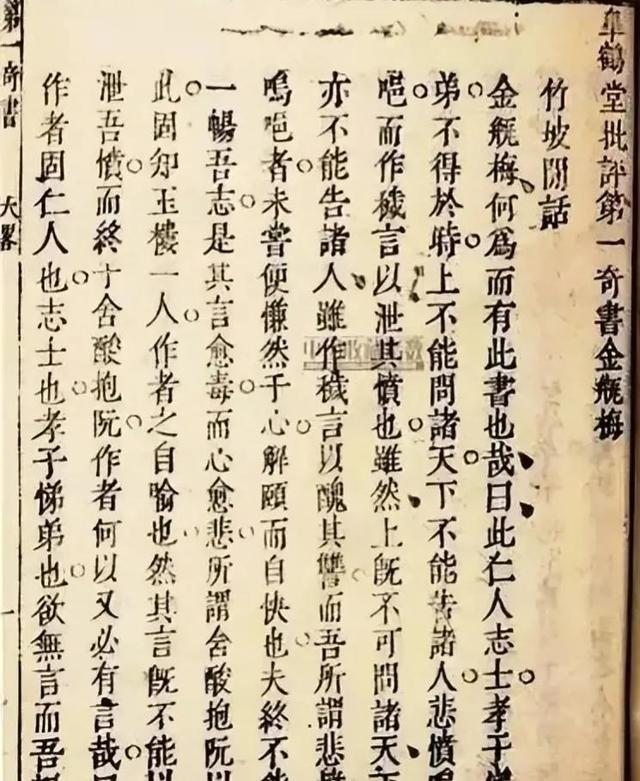 皐鶴堂批評第一奇書金瓶梅
竹坡閒話
金瓶梅何爲而有此書也哉曰此仁人志士孝子
弟不得於時上不能問諸天下不能告諸人悲憤嗚
唈而作穢言以泄其憤也雖然上旣不可問諸天下
亦不能告諸人雖作穢言以醜其讐而吾所謂悲憤
嗚唈者未嘗便慊然于心解頤而自快也夫終不能
一暢吾志是其言愈毒而心愈悲所謂含酸抱阮以
此固知玉樓一人作者之自喻也然其言旣不能以
泄吾憤而終于含酸抱阮作者何以又必有言哉曰
作者固仁人也志士也孝子悌弟也欲無言而吾
第一奇書 大畧 一